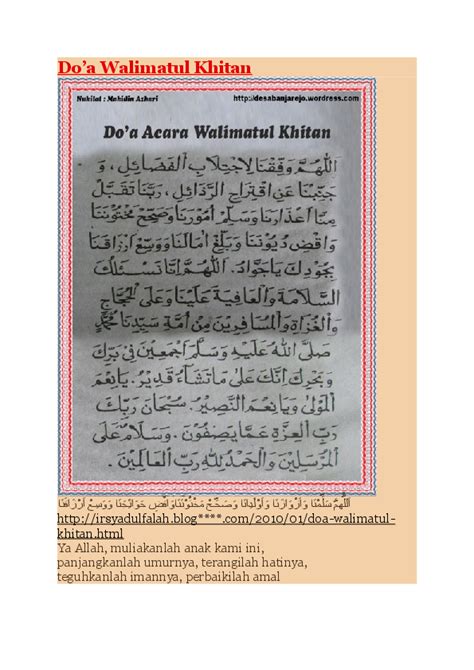 Do'a Walimatul Khitan
Nukilat : Mahidin Azhari http://desabanjarejo.wordpress.com
Do'a Acara Walimatul Khitan
اَللّٰهُمَّ وَفِّقْنَا لِاجْتِلَابِ الْفَضَائِلِ ، وَ
جَنِّبْنَا عَنِ اقْتِرَاحِ الرَّذَائِلِ ، رَبَّنَا تَقَبَّلْ
مِنَّا أَعْذَارَنَا وَسَلِّمْ أُمُوْرَنَا وَصَحِّحْ مَخْتُوْنَنَا
وَاقْضِ دُيُوْنَنَا وَبَلِّغْ اٰمَالَنَا وَوَسِّعْ أَرْزَاقَنَا
بِجُوْدِكَ يَاجَوَّادُ. اَللّٰهُمَّ إِنَّا نَسْئَلُكَ
السَّلَامَةَ وَالْعَافِيَةَ عَلَيْنَا وَعَلَى الْحُجَّاجِ
وَالْغُزَاةِ وَالْمُسَافِرِيْنَ مِنْ أُمَّةِ سَيِّدِنَا مُحَمَّدٍ
صَلَّى اللّٰهُ عَلَيْهِ وَسَلَّمَ أَجْمَعِيْنَ فِى بَرِّكَ
وَبَحْرِكَ إِنَّكَ عَلَى مَاتَشَآءُ قَدِيْرٌ. يَانِعْمَ
الْمَوْلَى وَيَانِعْمَ النَّصِيْرُ. سُبْحَانَ رَبِّكَ
رَبِّ الْعِزَّةِ عَمَّا يَصِفُوْنَ. وَسَلَامٌ عَلَى
الْمُرْسَلِيْنَ وَالْحَمْدُ لِلّٰهِ رَبِّ الْعَالَمِيْنَ .
اَللّٰهُمَّ سَلِّمْنَا وَصَحِّحْ مَخْتُوْنَنَا وَاقْضِ حَوَائِجَنَا وَوَسِعْ اَرْزَاقَنَا
http://irsyadulfalah.blog****.com/2010/01/doa-walimatul-
khitan.html
Ya Allah, muliakanlah anak kami ini,
panjangkanlah umurnya, terangilah hatinya,
teguhkanlah imannya, perbaikilah amal